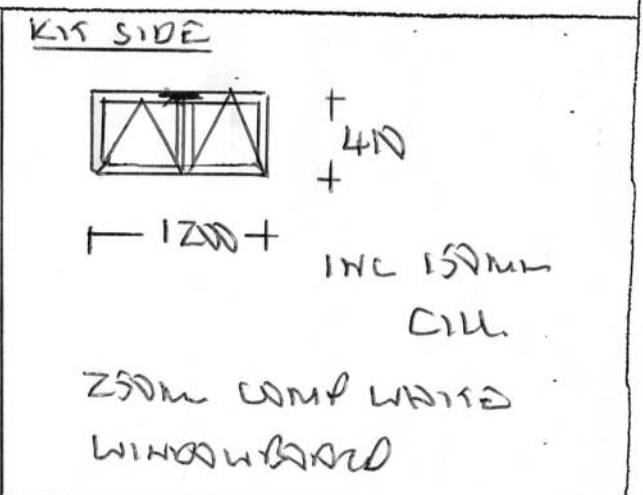 KIT SIDE
410
1200
INC 150mm
CILL.
250mm COMP WHITE
WINDOWBOARD